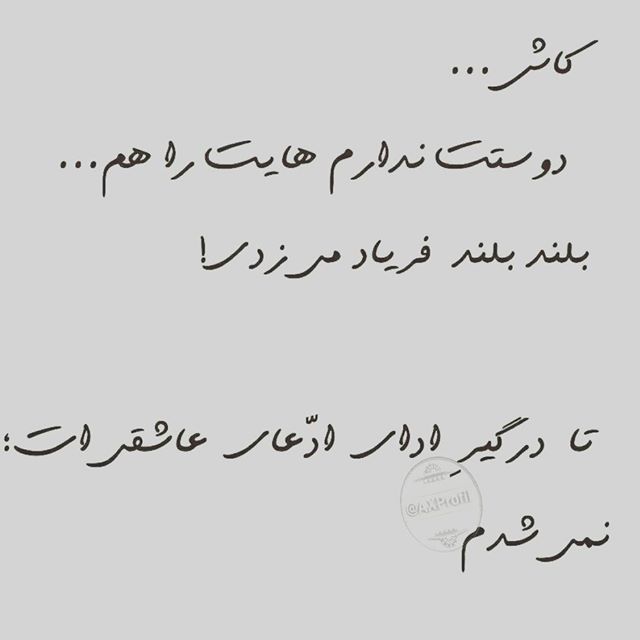 کاش...
دوستت ندارم هایت را هم...
بلند بلند فریاد می زدی!
تا درگیرِ ادای ادّعای عاشقی ات؛
نمی شدم
@AXProfil